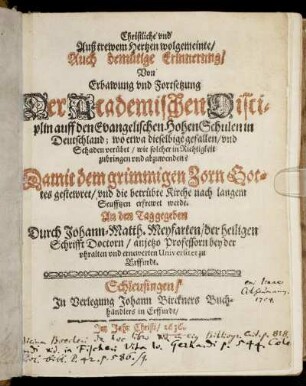 Christliche vnd
Auß trewem Hertzen wolgemeinte/
Auch demütige Erinnerung/
Von
Erbawung vnd Fortsetzung
Der Academischen Disci-
plin auff den Evangelischen Hohen Schulen in
Deutschland; wo etwa dieselbige gefallen/ vnd
Schaden verübt/ wie solcher in Richtigkeit
zubringen vnd abzuwenden:
Damit dem grimmigen Zorn Got-
tes gestewret/ vnd die betrübte Kirche nach langem
Seufftzen erfrewet werde.
An den Tag gegeben
Durch Johann-Matth. Meyfarten/ der heiligen
Schrifft Doctorn/ anjetzo Professorn bey der
vhralten und ernewerten Universitet zu
Erffurdt.
Schleusingen/
In Verlegung Johann Birckners Buch-
händlers in Erffurdt/
Im Jahr Christi/ 1636.